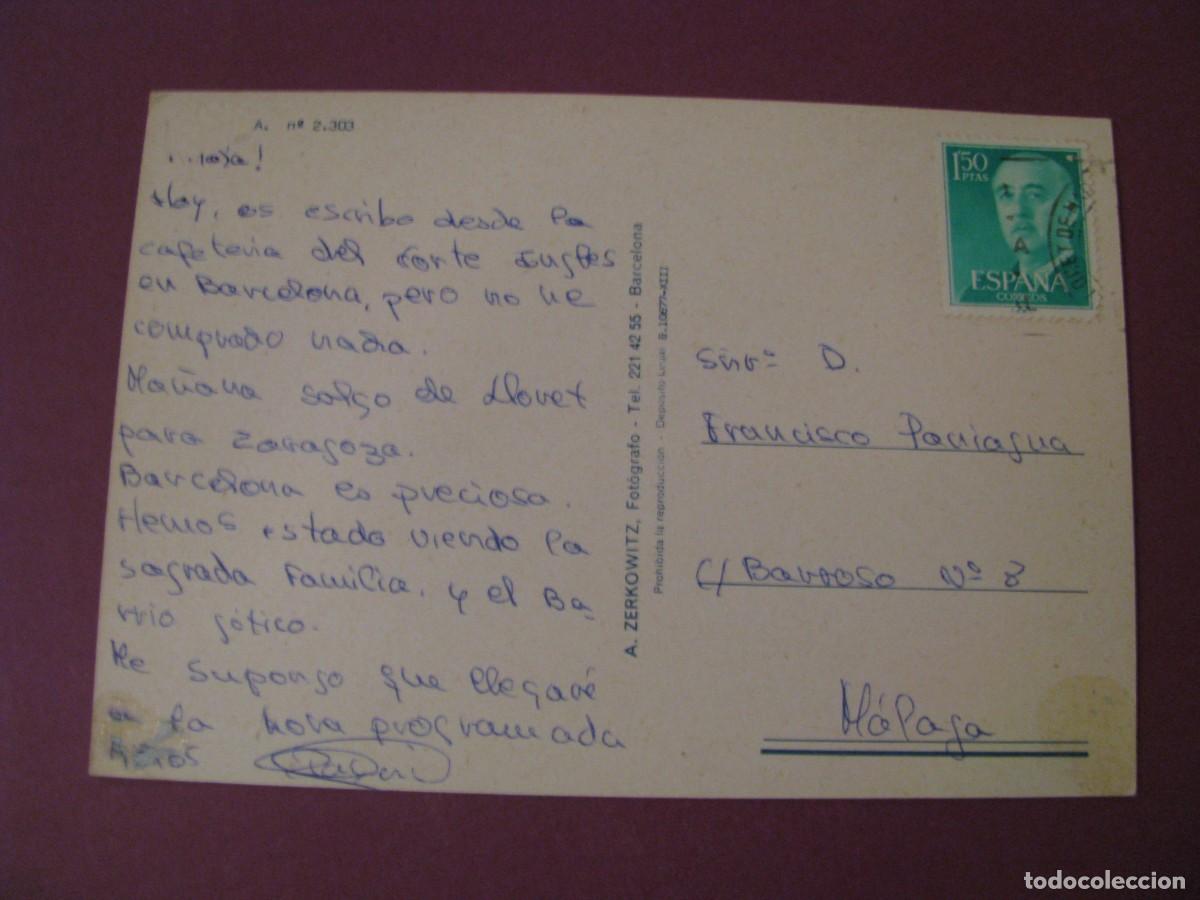 A. nº 2.303
Hoy, os escribo desde la
cafeteria del Corte Ingles
en Barcelona, pero no he
comprado nada.
Mañana salgo de Lloret
para Zaragoza.
Barcelona es preciosa.
Hemos estado viendo la
sagrada Familia, y el Ba-
rrio gótico.
Me supongo que llegaré
a la hora programada
A. ZERKOWITZ, Fotógrafo - Tel. 221 42 55 - Barcelona
Prohibida la reproducción - Depósito Legal B. 10677-XIII
1'50
PTAS
ESPAÑA
CORREOS
D.
Francisco Paniagua
C/ Barroso Nº 2
Málaga
todocoleccion